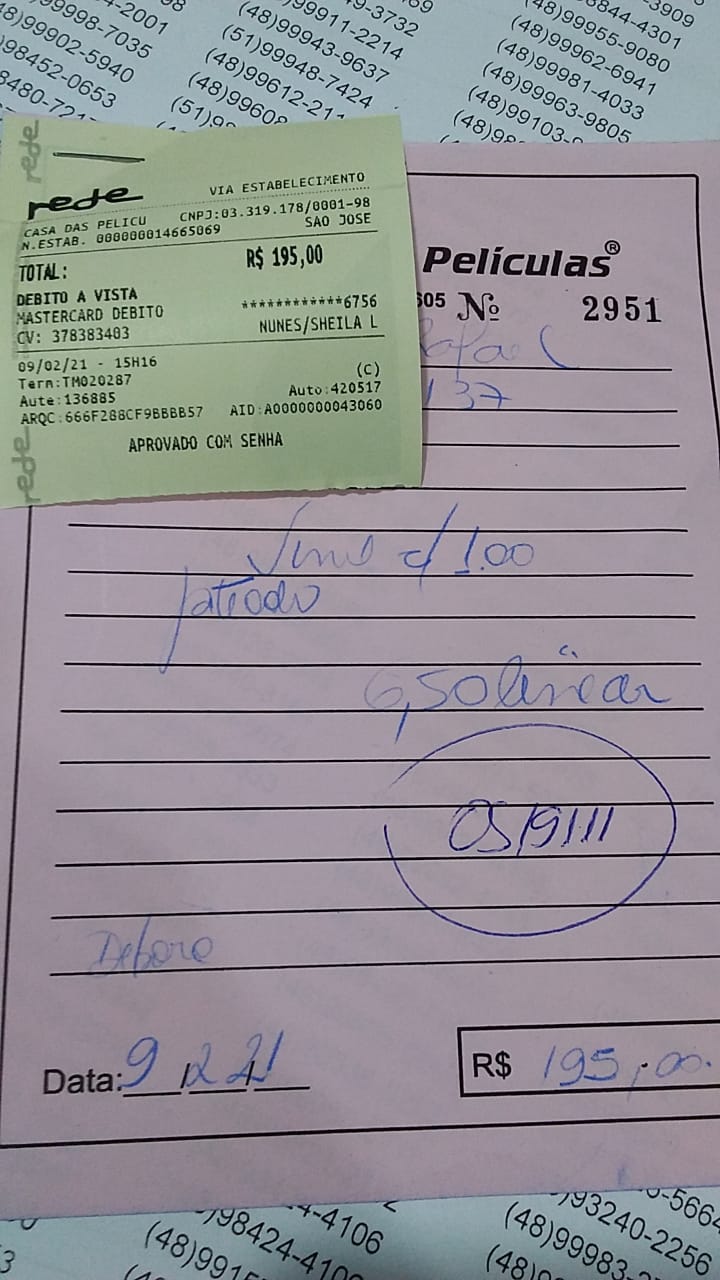 -2001
99998-7035
48)99902-5940
98452-0653
(48)99911-2214
(48)99943-9637
(51)99948-7424
(48)99612-21
(48)99608
9-3732
8844-4301
(48)99955-9080
(48)99962-6941
(48)99981-4033
(48)99963-9805
(48)99103-
3909
rede
rede
rede
VIA ESTABELECIMENTO
CASA DAS PELICU CNPJ:03.319.178/0001-98
N.ESTAB. 000000014665069 SAO JOSE
TOTAL: R$ 195,00
DEBITO A VISTA
MASTERCARD DEBITO ************6756
CV: 378383403 NUNES/SHEILA L
09/02/21 - 15H16 (C)
Term:TM020287 Auto:420517
Aute:136885 AID:A0000000043060
ARQC:666F288CF9BBBB57
APROVADO COM SENHA
Películas®
605 Nº 2951
Rafael
137
c/ 1.00
jateado
6,50 linear
Debora
Data: 9 / 2 / 21
R$ 195,00
4-4106
98424-410
(48)991
93240-2256
(48)99983-2
-5664